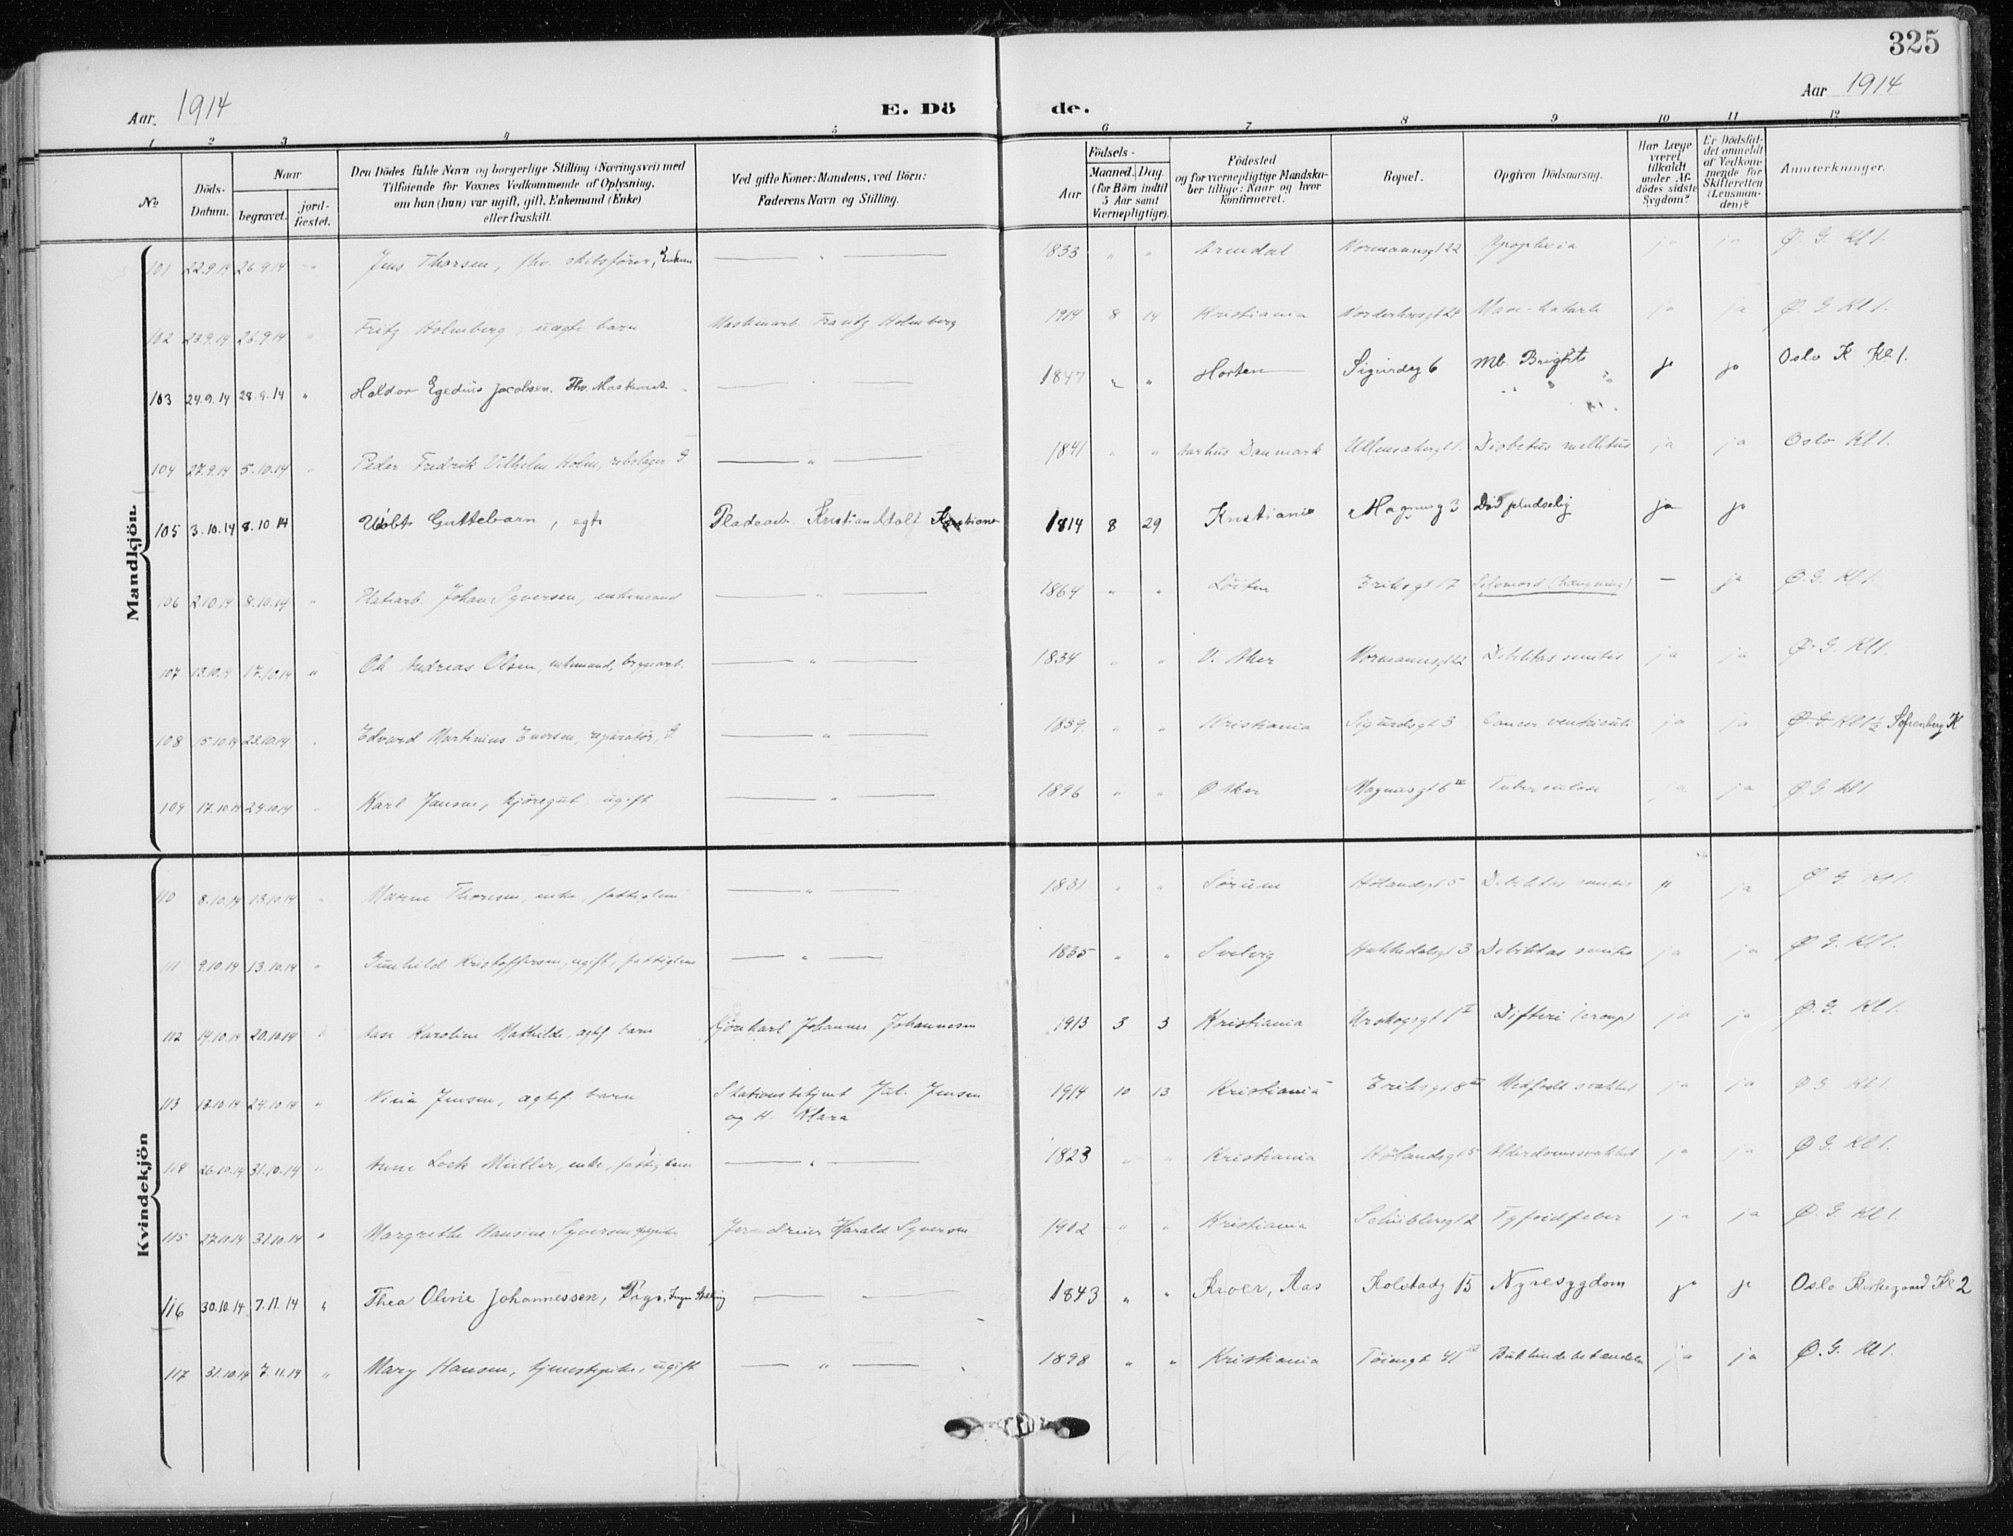 325
Aar 1914 E. Dö de. Aar 1914
1 2 3 4 5 6 7 8 9 10 11 12
No
Döds-Datum.
Naar
begravet.
jord-fæstet.
Den Dödes fulde Navn og borgerlige Stilling (Næringsvei) med
Tilføiende for Voxnes Vedkommende af Oplysning,
om han (hun) var ugift, gift, Enkemand (Enke)
eller fraskilt.
Ved gifte Koner: Mandens, ved Börn:
Faderens Navn og Stilling.
Födsels-
Aar
Maaned. Dag.
(for Börn indtil
5 Aar samt
Værnepligtige).
Födested
og for værnepligtige Mandska-
ber tillige: Naar og hvor
konfirmeret.
Bopæl.
Opgiven Dödsaarsag.
Har Læge
været
tilkaldt
under Af-
dödes sidste
Sygdom?
Er Dödsfal-
det anmeldt
af Vedkom-
mende for
Skifteretten
(Lensman-
den)?
Anmerkninger.
Mandkjön.
101 22.9.14 26.9.14 Jens Thorsen, fhv. skibsfører, Enkem — " — 1833 " " Arendal Normannsgt 22 Apoplexia ja ja Ø. G. Kl 1.
102 23.9.14 26.9.14 " Fritz Holmberg, uægte barn Maskinarb. Frantz Holmberg 1914 8 14 Kristiania Nordenbergt 24 Mave-katarh ja ja Ø. G. Kl 1.
103 24.9.14 28.9.14 " Haldor Egedius Jacobsen. Fhv. Maskinist — — 1847 " " Horten Sigurdsg 6 Mb. Brightii ja ja Oslo K Kl 1.
104 27.9.14 5.10.14 " Peder Fredrik Vilhelm Holm, rebslager G. — " — 1841 " " Aarhus Danmark Ullensakergt 1. Diabetus mellitus ja ja Oslo Kl 1.
105 3.10.14 8.10.14 Udøbt Guttebarn, egte Pladearb. Kristian Adolf 1814 8 29 Kristiania Magnusg 3 Død pludselig ja ja
106 2.10.14 8.10.14 " Platearb. Johan Syversen, enkemand — " — 1864 " " Løiten Eriksgt 17 Selvmord (hængning) — ja Ø. G. Kl 1.
107 13.10.14 17.10.14 " Ole Andreas Olsen, enkemand, bryggarb. — " — 1834 " " V. Aker Normannsgt 22 Debilitas senilis ja ja Ø. G. Kl 1.
108 15.10.14 23.10.14 " Edvard Martinius Eversen, reparatør, — " — 1859 " " Kristiania Sigurdsgt 3 Cancer ventriculi ja ja Ø. G. Kl 1 Sofienberg K
109 17.10.14 24.10.14 " Karl Jansen, kjøregut. ugift — " — 1896 " " Ø Aker Magnusgt 6 III Tuberculose ja ja Ø. G. Kl 1.
Kvindekjön
110 8.10.14 13.10.14 " Maren Thoresen, enke, fattiglem — " — 1831 " " Sørum Hølandsgt 5 Debilitas senilis ja ja Ø. G. Kl 1.
111 9.10.14 13.10.14 " Gunhild Kristoffersen, ugift, fattiglem — " — 1835 " " Svelvig Hakkedalsgt 3 Debilitas senilis ja ja Ø. G. Kl 1.
112 14.10.14 20.10.14 " Aase Karoline Mathilde, ægtef. barn Kjørekarl Johannes Johannesen 1913 3 3 Kristiania Urskogsgt 1 II Difteri (croup) ja ja Ø. G. Kl 1.
113 13.10.14 24.10.14 " Nina Jensen, ægtef. barn Stationsbetjent Jul. Jensen
og H. Klara 1914 10 13 Kristiania Eriksgt 8 II Medfødt svakhet ja ja Ø G. Kl 1.
114 26.10.14 31.10.14 " Anne Lock Müller, enke, fattiglem — " — 1823 " " Kristiania Hølandsgt 5 Alderdomssvakhet ja ja Ø. G. Kl 1.
115 27.10.14 31.10.14 " Margrethe Hansine Syversen, Jerndreier Harald Syversen 1902 " " Kristiania Schüblersgt 2 Tyfoidfeber ja ja Ø. G. Kl 1.
116 30.10.14 7.11.14 " Thea Olivie Johannessen, Pige, Ingen Stilling — — 1843 " " Kroer, Aas Kolstadg 15 Nyresygdom ja ja Oslo Kirkegaard Kl 2
117 31.10.14 7.11.14 " Mary Hansen, tjenestepike, ugift — " — 1898 " " Kristiania Tøiengt 41 Bukhindebetændelse ja ja Ø. G. Kl 1.